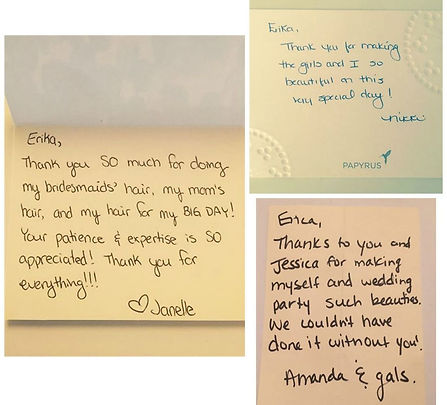 Erika,
Thank you SO much for doing
my bridesmaids' hair, my mom's
hair, and my hair for my BIG DAY!
Your patience & expertise is SO
appreciated! Thank you for
everything!!!
♡Janelle
Erika,
Thank you for making
the girls and I so
beautiful on this
very special day!
Nikki
PAPYRUS
Erica,
Thanks to you and
Jessica for making
myself and wedding
party such beauties.
We couldn't have
done it without you!
Amanda & gals.